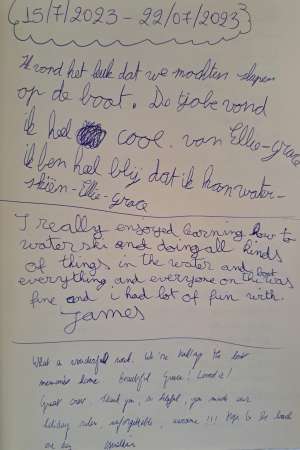 15/7/2023 - 22/07/2023
Ik vond het leuk dat we mochten slapen
op de boot. De tjobe vond
ik heel cool. van Ellie-Grace
ik ben heel blij dat ik kan water-
skiën - Ellie-Grace
I really enjoyed learning how to
water ski and doing all kinds
of things in the water and boat
everything and everyone on the was
fine and i had lot of fun with.
James
What a wonderful week. We're taking the best
memories home. Beautiful Greece! Loved it!
Great crew. Thank you, so helpful, you made our
holiday sailor, unforgettable, awesome!!! Hope to be back
one day